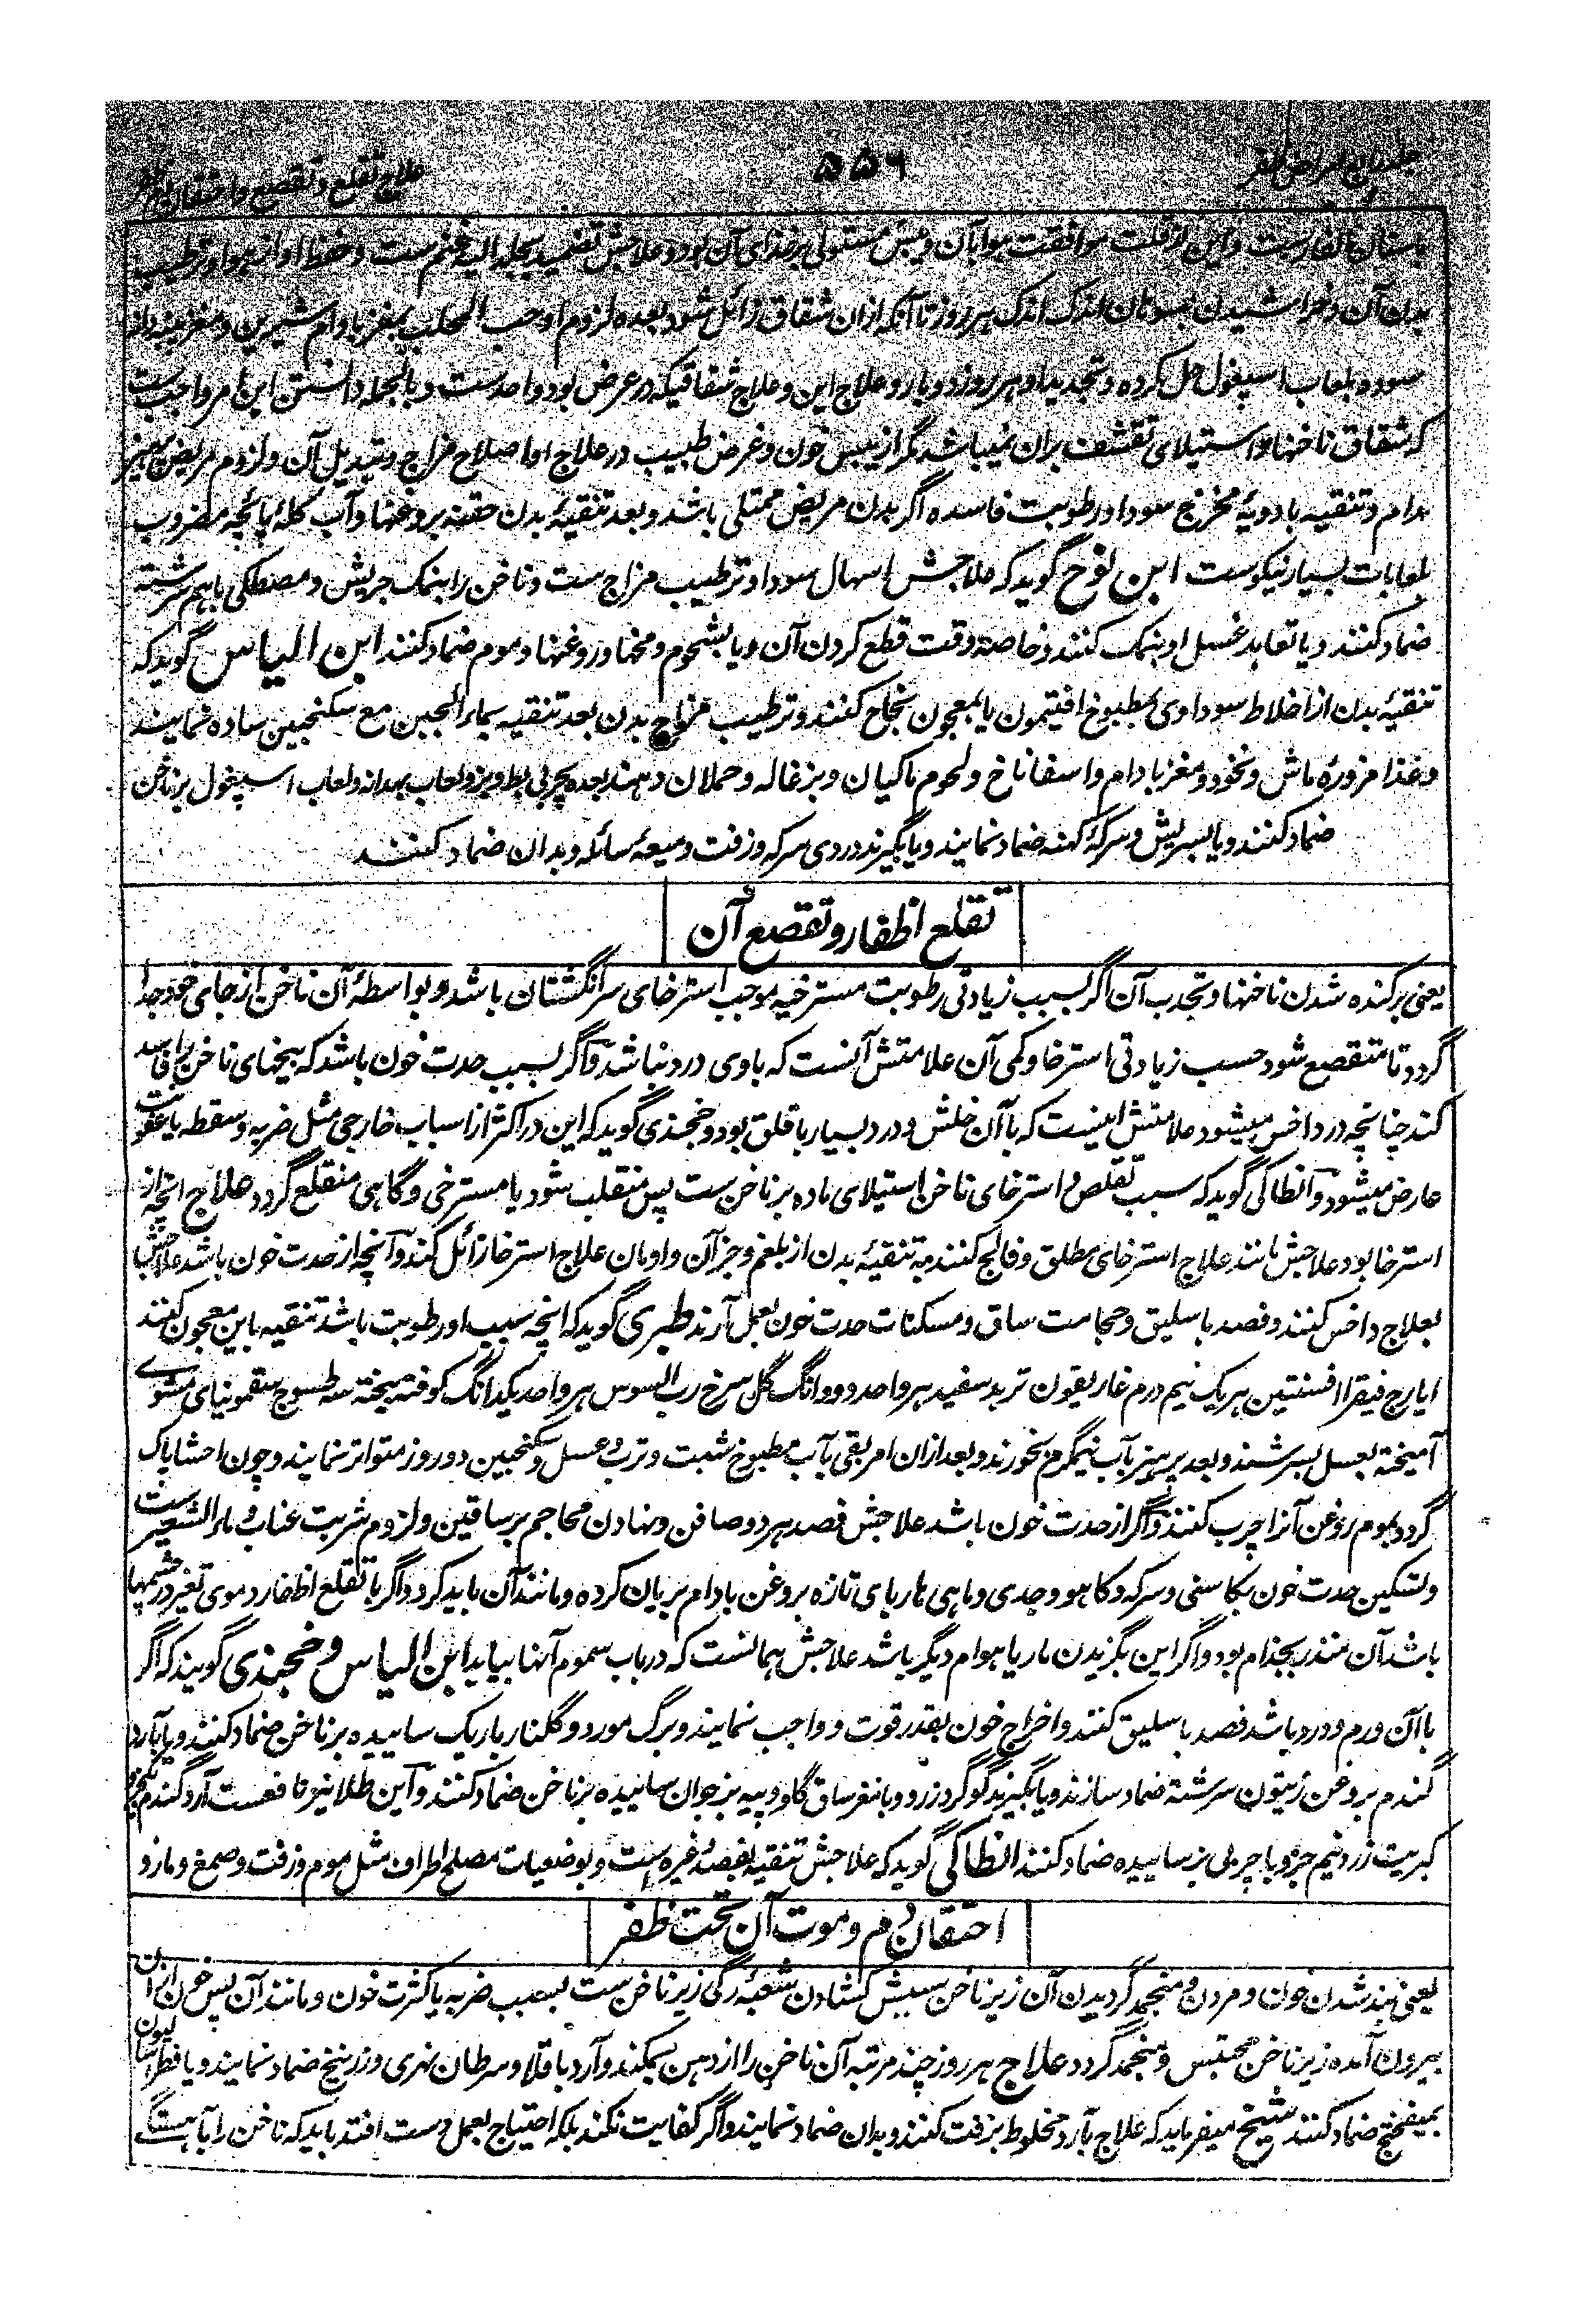 علاج تقلع و تقصع و احتقان ۵۵۶ امراض ظفر
باسنان الفارست و این از قلت موافقت هوا بآن و یبس مستولی بر غذای آن بود و علاجش تضمید بجله الیه غنم ست و حفظ او از هوا و ترطیب
بدن آن و خراشیدن بسوهان اندک اندک هر روز تا آنکه ازان شقاق زائل شود بعده لزوم او حب المحلب بمغز بادام شیرین و مغز
سوده بلعاب اسپغول حل کرده و تجدید او هر روز دوبار و علاج این و علاج شقاقیکه در عرض بود واحد ست و بالجمله دانستن این امر واجب ست
که شقاق ناخنها و استیلای تقشف بران نمیباشد مگر از یبس خون و غرض طبیب در علاج او اصلاح مزاج و تبدیل آن و لزوم مریض پرهیز
بدام و تنقیه بادویهٔ مخرج سودا و رطوبت فاسده اگر بدن مریض ممتلی باشد و بعد تنقیهٔ بدن حقنه بروغنها و آب کله پائچه مضروب
بلعابات بسیار نیکوست ابن نوح گوید که علاجش اسهال سودا و ترطیب مزاج ست و ناخن را بنمک جریش و مصطکی باهم سرشته
ضماد کنند و یا تعاهد غسل او بنمک کنند و خاصة وقت قطع کردن آن و یا بشحوم و مخها و روغنها و موم ضماد کنند ابن الیاس گوید که
تنقیهٔ بدن از اخلاط سوداوی بمطبوخ افتیمون یا بمعجون نجاح کنند و ترطیب مزاج بدن بعد تنقیه بماء الجبن مع سکنجبین ساده نمایند
و غذا مزورهٔ ماش و نخود و مغز بادام و اسفاناخ و لحوم ماکیان و بزغاله و حملان دهند بعده بچربی بط و بز و لعاب بهدانه و لعاب اسپغول بر ناخن
ضماد کنند و یا بسریش و سرکهٔ کهنه ضماد نمایند و یا بگیرند دردی سرکه و زفت و میعهٔ سائله و بدان ضماد کنند
تقلع اظفار و تقصع آن
یعنی برکنده شدن ناخنها و تحدب آن اگر بسبب زیادتی رطوبت مسترخیه موجب استرخای سر انگشتان باشد و بواسطهٔ آن ناخن از جای خود جدا
گردد تا متقصع شود حسب زیادتی استرخا و کمی آن علامتش آنست که باوی درد نباشد و اگر بسبب حدت خون باشد که بیخهای ناخن را فاسد
کند چنانچه در داخس میشود علامتش اینست که با آن خلش و درد بسیار با قلق بود و خجندی گوید که این در اکثر از اسباب خارجی مثل ضربه و سقطه یا عفونت
عارض میشود و انطاکی گوید که سبب تقلص و استرخای ناخن استیلای ماده بر ناخن ست پس منقلب شود یا مسترخی و گاهی منقلع گردد علاج انچه از
استرخا بود علاجش مانند علاج استرخای مطلق و فالج کنند به تنقیهٔ بدن از بلغم و جز آن و ادمان علاج استرخا زائل کند و آنچه از حدت خون باشد علاجش
بعلاج داخس کنند و فصد باسلیق و حجامت ساق و مسکنات حدت خون بعمل آرند طبری گوید که انچه سبب او رطوبت باشد تنقیه باین معجون کنند
ایارج فیقرا افسنتین هر یک نیم درم غاریقون تربد سفید هر واحد دو دانگ گل سرخ رب السوس هر واحد یکدانگ کوفته بیخته سه طسوج سقمونیای مشوی
آمیخته بعسل بسرشند و بعد پرهیز بآب نیمگرم بخورند و بعد ازان امر بقی بآب مطبوخ شبت و ترب و عسل و سکنجبین دو روز متواتر نمایند و چون احشا پاک
گردد بموم روغن آنرا چرب کنند و اگر از حدت خون باشد علاجش فصد هر دو صافن و نهادن محاجم بر ساقین و لزوم شربت عناب و ماء الشعیر ست
و تسکین حدت خون بکاسنی و سرکه و کاهو و جدی و ماهی ماربای تازه بروغن بادام بریان کرده و مانند آن باید کرد و اگر با تقلع اظفار دموی تغیر در چشمها
باشد آن منذر بجذام بود و اگر این بگزیدن مار یا هوام دیگر باشد علاجش همانست که در باب سموم آنها بیاید ابن الیاس و خجندی گویند که اگر
با آن ورم و درد باشد فصد باسلیق کنند و اخراج خون بقدر قوت و واجب نمایند و برگ مورد و گلنار باریک ساییده بر ناخن ضماد کنند و یا بآرد
گندم بروغن زیتون سرشته ضماد سازند و یا بگیرند گوگرد زرد و با مغز ساق گاو و پیه بز جوان ساییده بر ناخن ضماد کنند و این طلا نیز نافعست آرد گندم یکجزو
کبریت زرد نیم جزو با چربی بز ساییده ضماد کنند انطاکی گوید که علاجش تنقیه بفصد و غیره است و بوضعیات مصلح اطراف مثل موم و زفت و صمغ و مازو
احتقان دم و موت آن تحت ظفر
یعنی بند شدن خون و مردن و منجمد گردیدن آن زیر ناخن سببش کشادن شعبهٔ رگی زیر ناخن ست بسبب ضربه یا کثرت خون و مانند آن پس خون ازان
بیرون آمده زیر ناخن محتبس و منجمد گردد علاج هر روز چند مرتبه آن ناخن را از دهن بمکند و آرد باقلا و سرطان نهری و زرنیخ ضماد نمایند و یا فطراسالیون
بمیفختج ضماد کنند شیخ میفرماید که علاج بآرد مخلوط بزفت کنند و بدان ضماد نمایند و اگر کفایت نکند بلکه احتیاج بعمل دست افتد باید که ناخن را بآهستگی